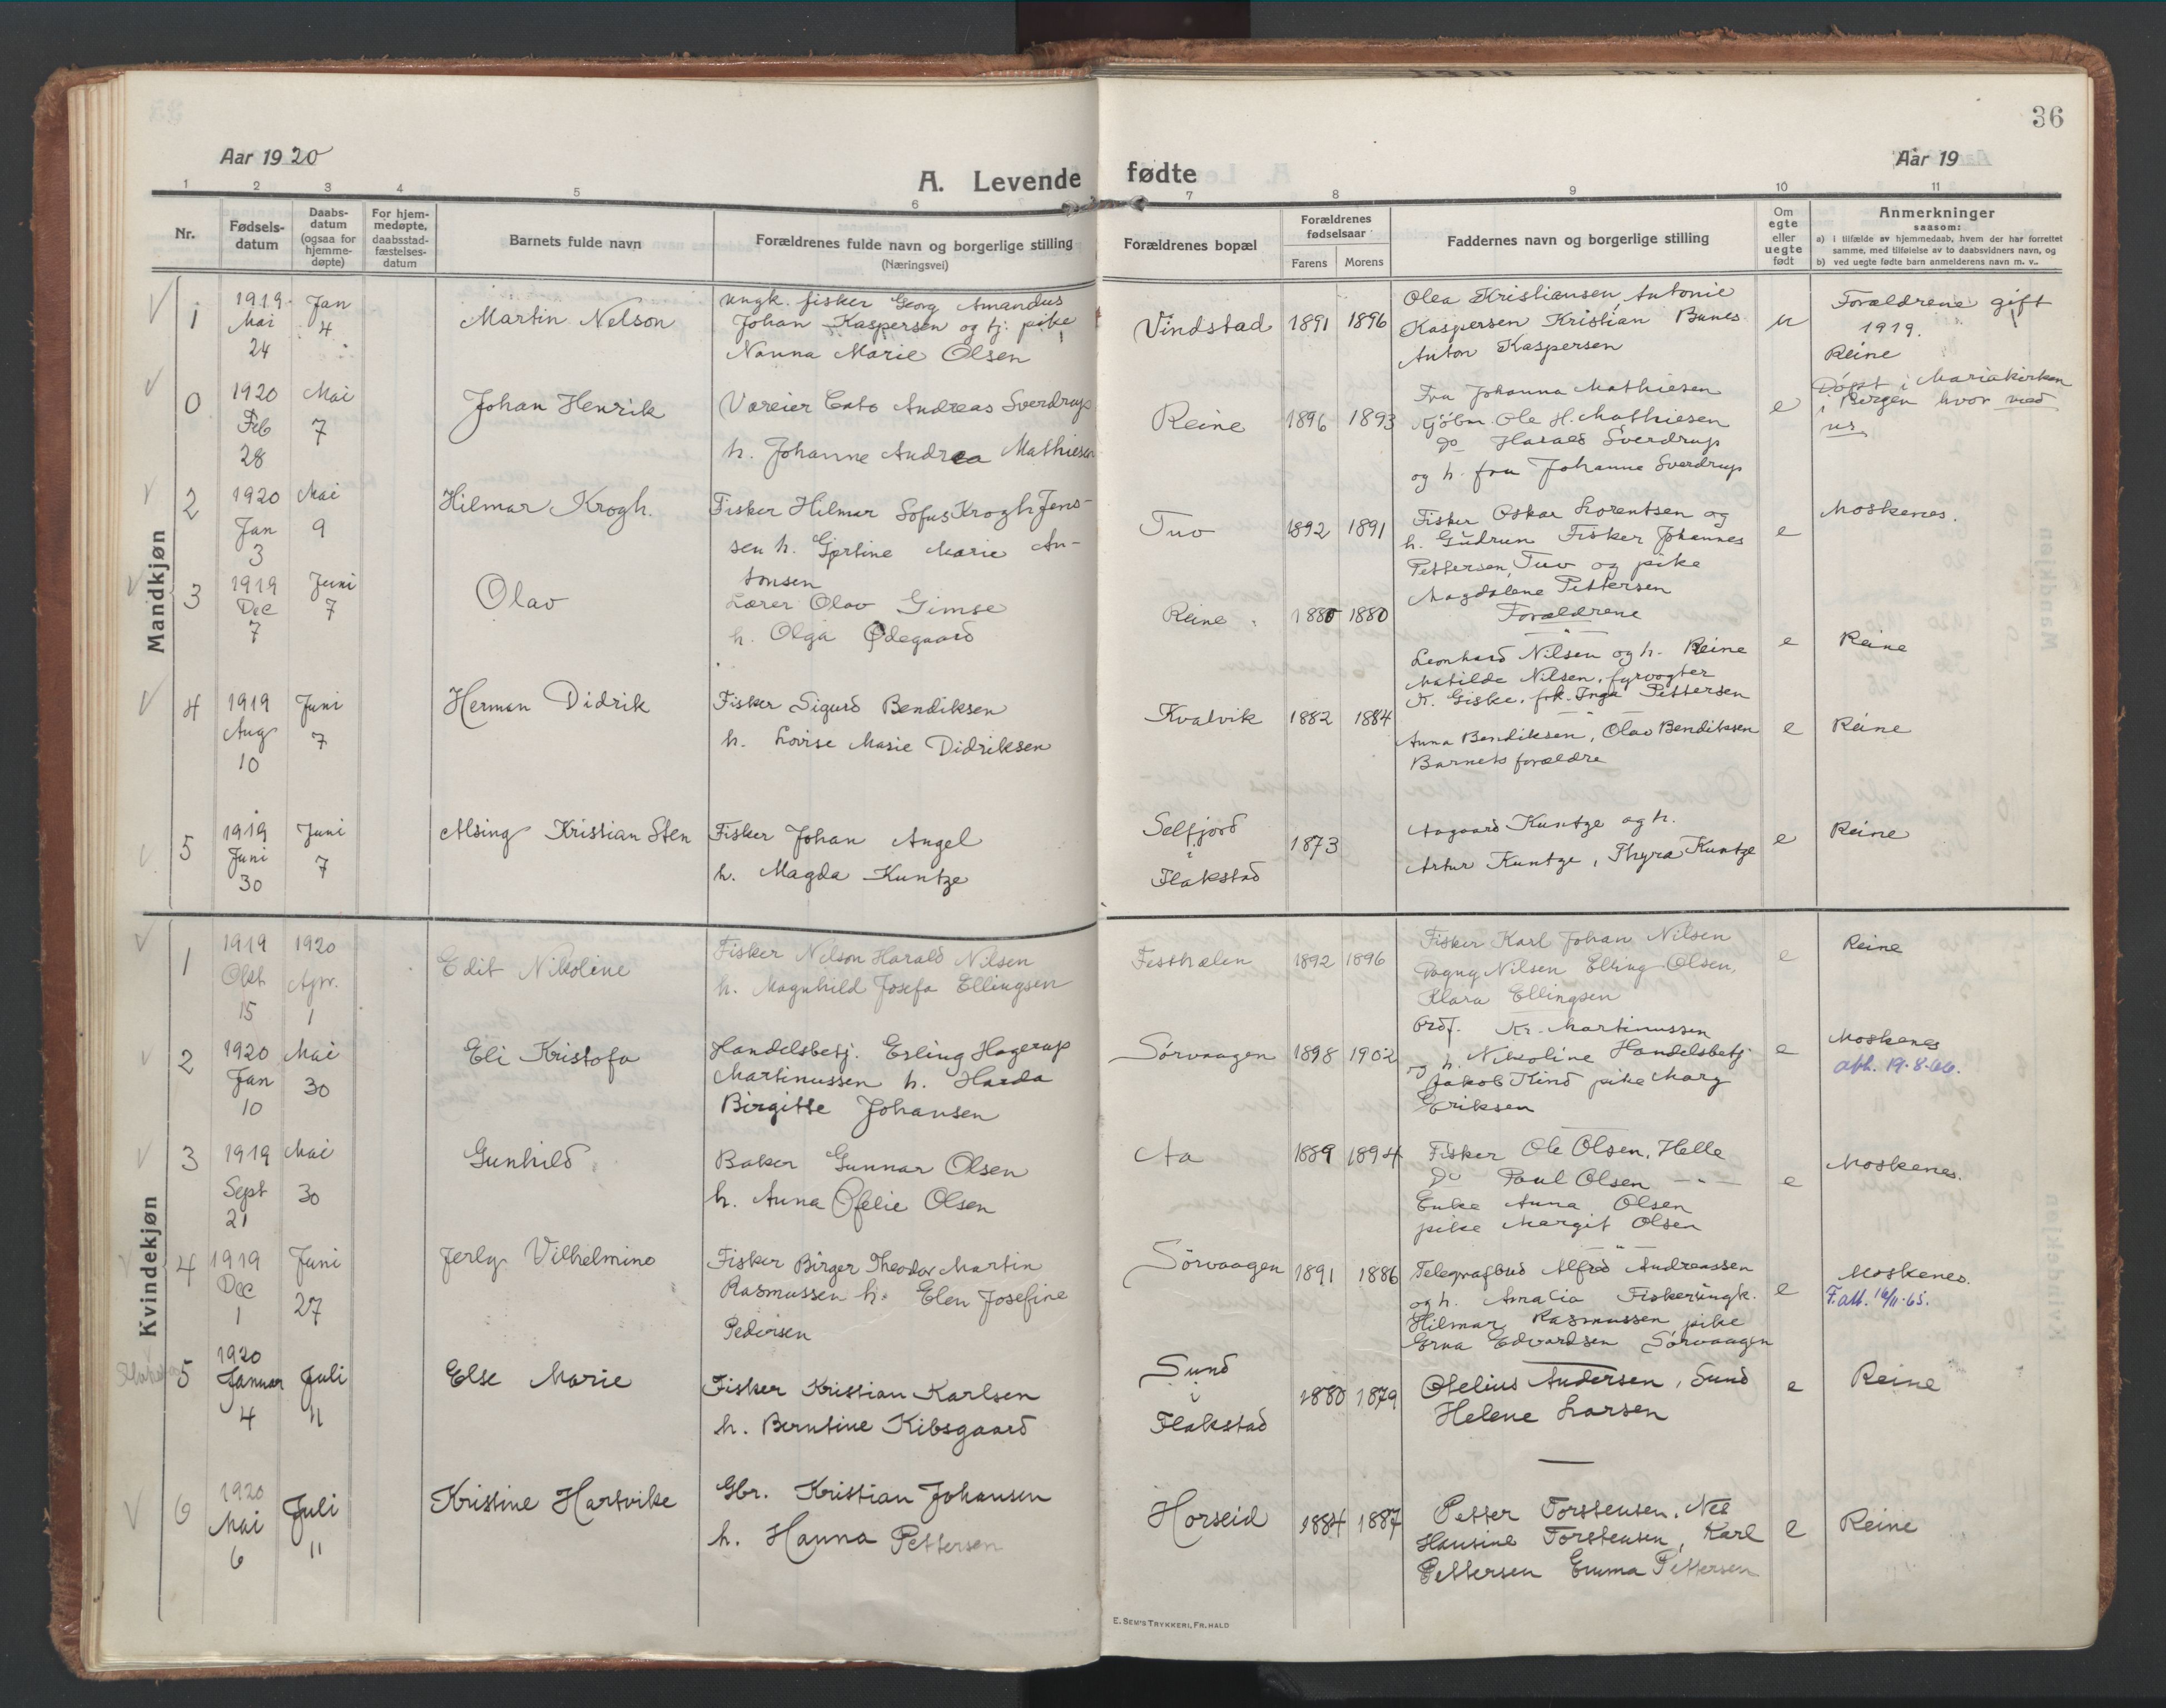 36
Aar 1920
A. Levende fødte
Aar 19
1 2 3 4 5 6 7 8 9 10 11
Nr.
Fødselsdatum
Daabsdatum (ogsaa for hjemmedøpte)
For hjemmedøpte, daabsstadfæstelsesdatum
Barnets fulde navn
Forældrenes fulde navn og borgerlige stilling
(Næringsvei)
Forældrenes bopæl
Forældrenes fødselsaar
Farens Morens
Faddernes navn og borgerlige stilling
Om egte eller uegte født
Anmerkninger
saasom:
a) i tilfælde av hjemmedaab, hvem der har forrettet
samme, med tilføielse av to daabsvidners navn, og
b) ved uegte fødte barn anmelderens navn m. v..
Mandkjøn
1
1919 Mai 24
Jan 4
Martin Nelson
ungk. fisker Georg Amandus
Johan Kaspersen og tj. pike
Nanna Marie Olsen
Vindstad
1891 1896
Olea Kristiansen, Antonie
Kaspersen Kristian Bunes
Anton Kaspersen
u
Forældrene gift
1919.
Reine
0
1920 Feb 28
Mai 7
Johan Henrik
Væreier Cato Andreas Sverdrup
h. Johanne Andrea Mathiesen
Reine
1896 1893
Fru Johanna Mathiesen
Kjöbm. Ole H. Mathiesen
Do Harald Sverdrup
og h. fru Johanne Sverdrup
e
Döpt i Mariakirken
i Bergen hvor med
nr.
2
1920 Jan 3
Mai 9
Hilmar Krogh.
Fisker Hilmar Sofus Krogh Jens-
sen h. Gjertine Marie An-
tonsen
Tuv
1892 1891
Fisker Oskar Lorentsen og
h. Gudrun Fisker Johannes
Pettersen, Tuv og pike
Magdalene Pettersen
e
Moskenes.
3
1919 Dec 7
Juni 7
Olav
Lærer Olav Gimse
h. Olga Ødegaard
Reine
1880 1880
Forældrene
Leonhard Nilsen og h. Reine
Matilde Nilsen, fyrvogter
K. Giske, frk. Inga Pettersen
e
Reine
4
1919 Aug 10
Juni 7
Herman Didrik
Fisker Sigurd Bendiksen
h. Lovise Marie Didriksen
Kvalvik
1882 1884
Anna Bendiksen, Olav Bendiksen
Barnets forældre
e
Reine
5
1919 Juni 30
Juni 7
Alsing Kristian Sten
Fisker Johan Angel
h. Magda Kuntze
Selfjord
i
Flakstad
1873
Aagaard Kuntze og h.
Artur Kuntze, Thyra Kuntze
e
Reine
Kvindekjøn
1
1919 Okt 15
1920 Apr. 1
Edit Nikoline
Fisker Nelson Harald Nilsen
h. Magnhild Josefa Ellingsen
Festhælen
1892 1896
Fisker Karl Johan Nilsen
Dagny Nilsen Elling Olsen,
Klara Ellingsen
e
Reine
2
1920 Jan 10
Mai 30
Eli Kristofa
Handelsbetj. Erling Hagerup
Martinussen h. Harda
Birgitte Johansen
Sørvaagen
1898 1902
Ordf. Kr. Martinussen
og h. Nikoline Handelsbetj
Jakob Kind pike Marg
Eriksen
e
Moskenes
att. 19-8-66.
3
1919 Sept 21
Mai 30
Gunhild
Baker Gunnar Olsen
h. Anna Ofelie Olsen
Aa
1889 1894
Fisker Ole Olsen, Helle
Do Paul Olsen - " -
Enke Anna Olsen
pike Margit Olsen
e
Moskenes.
4
1919 Dec 1
Juni 27
Jerly Vilhelmine
Fisker Birger Theodor Martin
Rasmussen h. Elen Josefine
Pedersen
Sörvaagen
1891 1886
Telegrafbud Alfred Andreassen
og h. Amalia Fisker ungk.
Hilmar Rasmussen pike
Erna Edvardsen Sörvaagen
e
Moskenes.
F.att. 16/11-65.
5
1920 Januar 4
Juli 11
Else Marie
Fisker Kristian Karlsen
h. Berntine Kibsgaard
Sund
i
Flakstad
1880 1879
Ofelius Andersen, Sund
Helene Larsen
e
Reine
6
1920 Mai 6
Juli 11
Kristine Hartvike
Gbr. Kristian Johansen
h. Hanna Pettersen
Horseid
1884 1887
Petter Torstensen. Nes
Hansine Torstensen, Karl
Pettersen Emma Pettersen
e
Reine
E. SEM'S TRYKKERI, FR.HALD